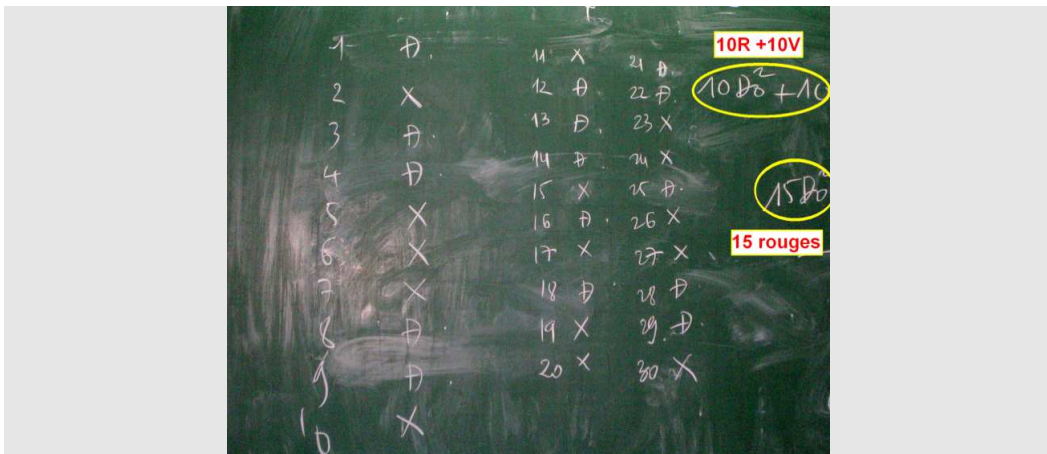 1 Đ.
2 X
3 Đ.
4 Đ.
5 X
6 X
7 X
8 Đ.
9 Đ.
10 X
11 X
12 Đ.
13 Đ.
14 Đ.
15 X
16 Đ.
17 X
18 Đ
19 X
20 X
21 Đ.
22 Đ.
23 X
24 X
25 Đ.
26 X
27 X
28 Đ
29. Đ.
30 X
10R +10V
10Đỏ + 10
15Đỏ
15 rouges